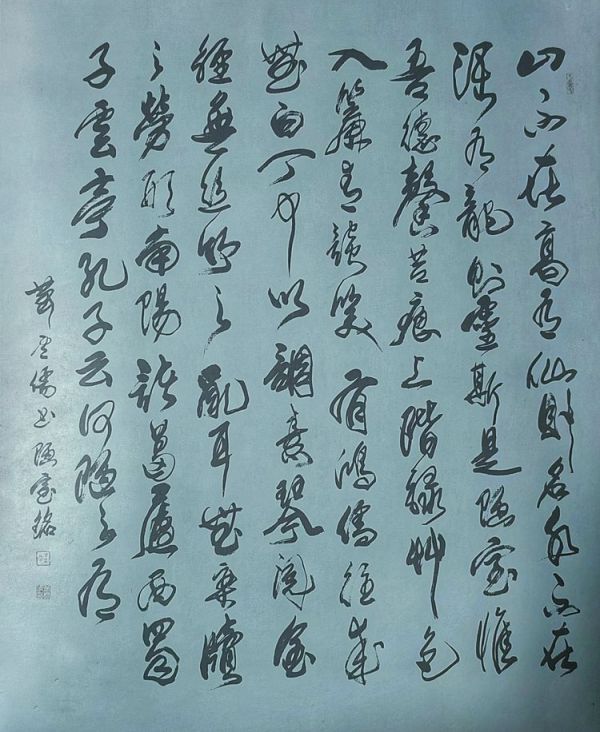 山不在高有仙則名水不在
深有龍則靈斯是陋室惟
吾德馨苔痕上階綠艸色
入簾青談笑有鴻儒往來
無白丁可以調素琴閱金
經無絲竹之亂耳無案牘
之勞形南陽諸葛廬西蜀
子雲亭孔子云何陋之有
儒書陋室銘